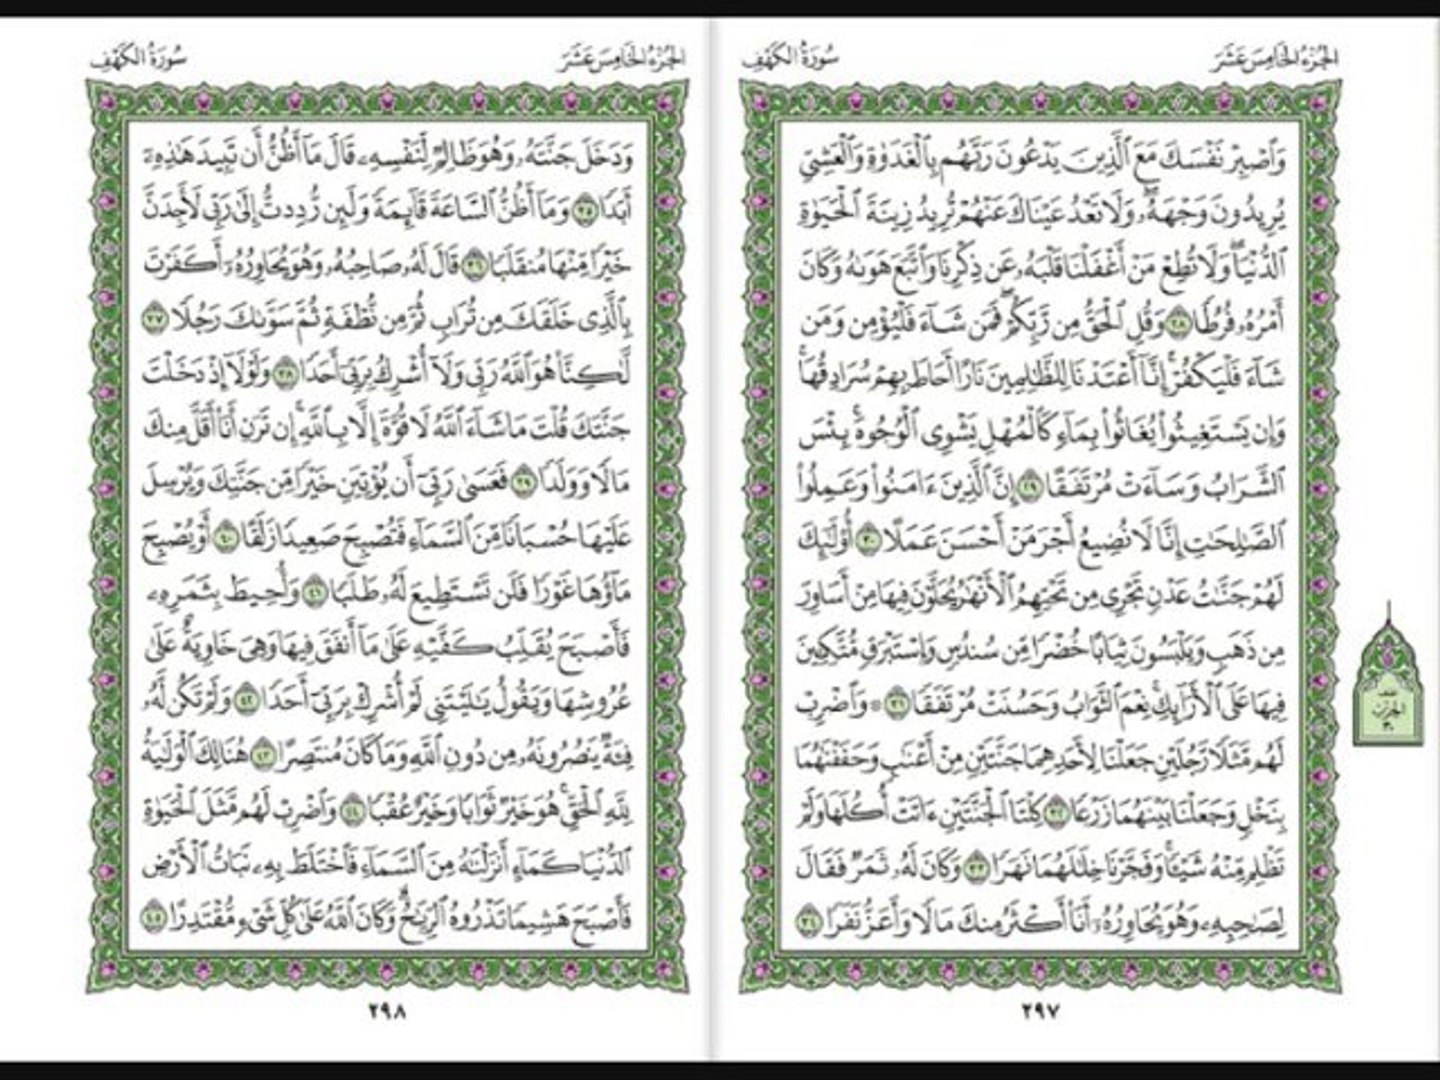 الجزء الخامس عشر
سورة الكهف
وَٱصۡبِرۡ نَفۡسَكَ مَعَ ٱلَّذِينَ يَدۡعُونَ رَبَّهُم بِٱلۡغَدَوٰةِ وَٱلۡعَشِيِّ
يُرِيدُونَ وَجۡهَهُۥۖ وَلَا تَعۡدُ عَيۡنَاكَ عَنۡهُمۡ تُرِيدُ زِينَةَ ٱلۡحَيَوٰةِ
ٱلدُّنۡيَاۖ وَلَا تُطِعۡ مَنۡ أَغۡفَلۡنَا قَلۡبَهُۥ عَن ذِكۡرِنَا وَٱتَّبَعَ هَوَىٰهُ وَكَانَ
أَمۡرُهُۥ فُرُطٗا ٢٨ وَقُلِ ٱلۡحَقُّ مِن رَّبِّكُمۡۖ فَمَن شَآءَ فَلۡيُؤۡمِن وَمَن
شَآءَ فَلۡيَكۡفُرۡۚ إِنَّآ أَعۡتَدۡنَا لِلظَّٰلِمِينَ نَارًا أَحَاطَ بِهِمۡ سُرَادِقُهَاۚ
وَإِن يَسۡتَغِيثُواْ يُغَاثُواْ بِمَآءٖ كَٱلۡمُهۡلِ يَشۡوِي ٱلۡوُجُوهَۚ بِئۡسَ
ٱلشَّرَابُ وَسَآءَتۡ مُرۡتَفَقًا ٢٩ إِنَّ ٱلَّذِينَ ءَامَنُواْ وَعَمِلُواْ
ٱلصَّٰلِحَٰتِ إِنَّا لَا نُضِيعُ أَجۡرَ مَنۡ أَحۡسَنَ عَمَلًا ٣٠ أُوْلَٰٓئِكَ
لَهُمۡ جَنَّٰتُ عَدۡنٖ تَجۡرِي مِن تَحۡتِهِمُ ٱلۡأَنۡهَٰرُ يُحَلَّوۡنَ فِيهَا مِنۡ أَسَاوِرَ
مِن ذَهَبٖ وَيَلۡبَسُونَ ثِيَابًا خُضۡرٗا مِّن سُندُسٖ وَإِسۡتَبۡرَقٖ مُّتَّكِـِٔينَ
فِيهَا عَلَى ٱلۡأَرَآئِكِۚ نِعۡمَ ٱلثَّوَابُ وَحَسُنَتۡ مُرۡتَفَقٗا ٣١ ۞ وَٱضۡرِبۡ
لَهُم مَّثَلٗا رَّجُلَيۡنِ جَعَلۡنَا لِأَحَدِهِمَا جَنَّتَيۡنِ مِنۡ أَعۡنَٰبٖ وَحَفَفۡنَٰهُمَا
بِنَخۡلٖ وَجَعَلۡنَا بَيۡنَهُمَا زَرۡعٗا ٣٢ كِلۡتَا ٱلۡجَنَّتَيۡنِ ءَاتَتۡ أُكُلَهَا وَلَمۡ
تَظۡلِم مِّنۡهُ شَيۡـٔٗاۚ وَفَجَّرۡنَا خِلَٰلَهُمَا نَهَرٗا ٣٣ وَكَانَ لَهُۥ ثَمَرٞ فَقَالَ
لِصَٰحِبِهِۦ وَهُوَ يُحَاوِرُهُۥٓ أَنَا۠ أَكۡثَرُ مِنكَ مَالٗا وَأَعَزُّ نَفَرٗا ٣٤
٢٩٧
نصف
الحزب
٣٠
الجزء الخامس عشر
سورة الكهف
وَدَخَلَ جَنَّتَهُۥ وَهُوَ ظَالِمٞ لِّنَفۡسِهِۦ قَالَ مَآ أَظُنُّ أَن تَبِيدَ هَٰذِهِۦٓ
أَبَدٗا ٣٥ وَمَآ أَظُنُّ ٱلسَّاعَةَ قَآئِمَةٗ وَلَئِن رُّدِدتُّ إِلَىٰ رَبِّي لَأَجِدَنَّ
خَيۡرٗا مِّنۡهَا مُنقَلَبٗا ٣٦ قَالَ لَهُۥ صَاحِبُهُۥ وَهُوَ يُحَاوِرُهُۥٓ أَكَفَرۡتَ
بِٱلَّذِي خَلَقَكَ مِن تُرَابٖ ثُمَّ مِن نُّطۡفَةٖ ثُمَّ سَوَّىٰكَ رَجُلٗا ٣٧
لَّٰكِنَّا۠ هُوَ ٱللَّهُ رَبِّي وَلَآ أُشۡرِكُ بِرَبِّيٓ أَحَدٗا ٣٨ وَلَوۡلَآ إِذۡ دَخَلۡتَ
جَنَّتَكَ قُلۡتَ مَا شَآءَ ٱللَّهُ لَا قُوَّةَ إِلَّا بِٱللَّهِۚ إِن تَرَنِ أَنَا۠ أَقَلَّ مِنكَ
مَالٗا وَوَلَدٗا ٣٩ فَعَسَىٰ رَبِّيٓ أَن يُؤۡتِيَنِ خَيۡرٗا مِّن جَنَّتِكَ وَيُرۡسِلَ
عَلَيۡهَا حُسۡبَانٗا مِّنَ ٱلسَّمَآءِ فَتُصۡبِحَ صَعِيدٗا زَلَقًا ٤٠ أَوۡ يُصۡبِحَ
مَآؤُهَا غَوۡرٗا فَلَن تَسۡتَطِيعَ لَهُۥ طَلَبٗا ٤١ وَأُحِيطَ بِثَمَرِهِۦ
فَأَصۡبَحَ يُقَلِّبُ كَفَّيۡهِ عَلَىٰ مَآ أَنفَقَ فِيهَا وَهِيَ خَاوِيَةٌ عَلَىٰ
عُرُوشِهَا وَيَقُولُ يَٰلَيۡتَنِي لَمۡ أُشۡرِكۡ بِرَبِّيٓ أَحَدٗا ٤٢ وَلَمۡ تَكُن لَّهُۥ
فِئَةٞ يَنصُرُونَهُۥ مِن دُونِ ٱللَّهِ وَمَا كَانَ مُنتَصِرًا ٤٣ هُنَالِكَ ٱلۡوَلَٰيَةُ
لِلَّهِ ٱلۡحَقِّۚ هُوَ خَيۡرٞ ثَوَابٗا وَخَيۡرٌ عُقۡبٗا ٤٤ وَٱضۡرِبۡ لَهُم مَّثَلَ ٱلۡحَيَوٰةِ
ٱلدُّنۡيَا كَمَآءٍ أَنزَلۡنَٰهُ مِنَ ٱلسَّمَآءِ فَٱخۡتَلَطَ بِهِۦ نَبَاتُ ٱلۡأَرۡضِ
فَأَصۡبَحَ هَشِيمٗا تَذۡرُوهُ ٱلرِّيَٰحُۗ وَكَانَ ٱللَّهُ عَلَىٰ كُلِّ شَيۡءٖ مُّقۡتَدِرًا ٤٥
٢٩٨